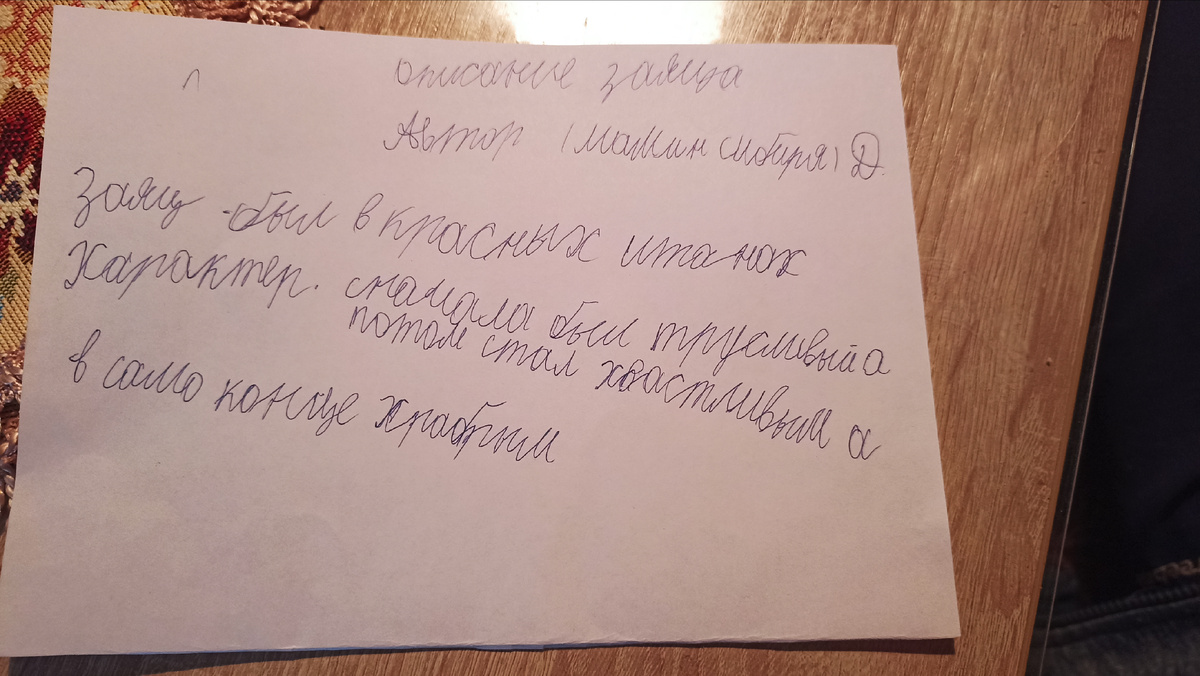 описание заяца
Автор (мамин сибиря) Д.
Заяц был в красных штанах
Характер. сначала был трусливый а
потом стал хвастливым а
в само конце храбрым